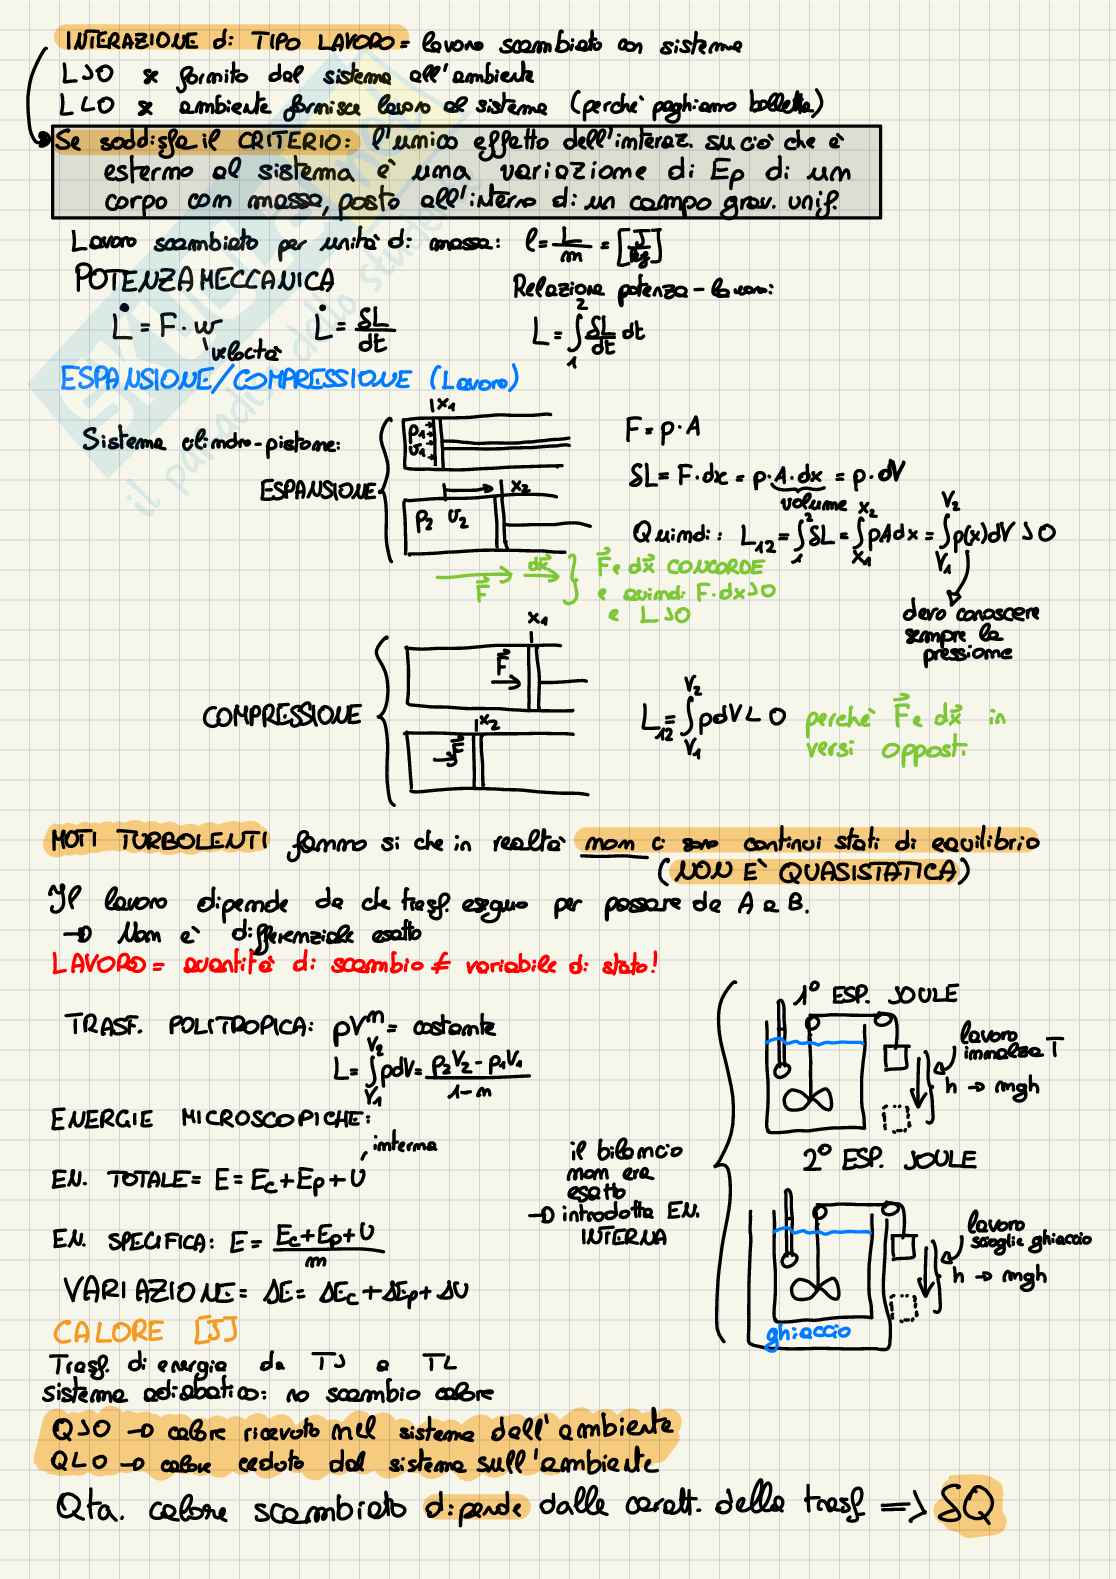 INTERAZIONE di TIPO LAVORO = lavoro scambiato con sistema
L>0 x fornito dal sistema all'ambiente
L<0 x ambiente fornisce lavoro al sistema (perchè paghiamo bolletta)
Se soddisfa il CRITERIO: l'unico effetto dell'interaz. su ciò che è
esterno al sistema è una variazione di Ep di un
corpo con massa, posto all'interno di un campo grav. unif.
Lavoro scambiato per unità di massa: l = L/m = [J/kg]
POTENZA MECCANICA
Relazione potenza-lavoro:
L̇ = F · w
velocità
L̇ = δL/dt
L = ∫₁² δL/dt dt
ESPANSIONE/COMPRESSIONE (Lavoro)
Sistema cilindro-pistone:
ESPANSIONE
x1
p1
v1
x2
p2 v2
F = p·A
δL = F·dx = p·A·dx = p·dV
volume
Quindi: L12 = ∫₁² δL = ∫x1 x2 pAdx = ∫V1 V2 p(x)dV > 0
F⃗ dx⃗
F⃗ e dx⃗ CONCORDE
e quindi F·dx>0
e L>0
devo conoscere
sempre la
pressione
COMPRESSIONE
x1
F⃗
x2
F⃗
L12 = ∫V1 V2 pdV < 0
perchè F⃗ e dx⃗ in
versi opposti
MOTI TURBOLENTI fanno si che in realtà non ci sono continui stati di equilibrio
(NON E' QUASISTATICA)
Il lavoro dipende da che trasf. eseguo per passare da A a B.
→ Non è differenziale esatto
LAVORO = quantità di scambio ≠ variabile di stato!
TRASF. POLITROPICA: pVⁿ = costante
L = ∫V1 V2 pdV = p2V2 - p1V1 / 1-n
ENERGIE MICROSCOPICHE:
interna
EN. TOTALE = E = Ec + Ep + U
EN. SPECIFICA: E = Ec + Ep + U / m
VARIAZIONE = ΔE = ΔEc + ΔEp + ΔU
il bilancio
non era
esatto
→ introdotta EN.
INTERNA
1° ESP. JOULE
lavoro
innalza T
h → mgh
2° ESP. JOULE
lavoro
scioglie ghiaccio
h → mgh
ghiaccio
CALORE [J]
Trasf. di energia da T> a T<
Sistema adiabatico: no scambio calore
Q>0 → calore ricevuto nel sistema dall'ambiente
Q<0 → calore ceduto dal sistema sull'ambiente
Qta. calore scambiato dipende dalle caratt. della trasf => δQ